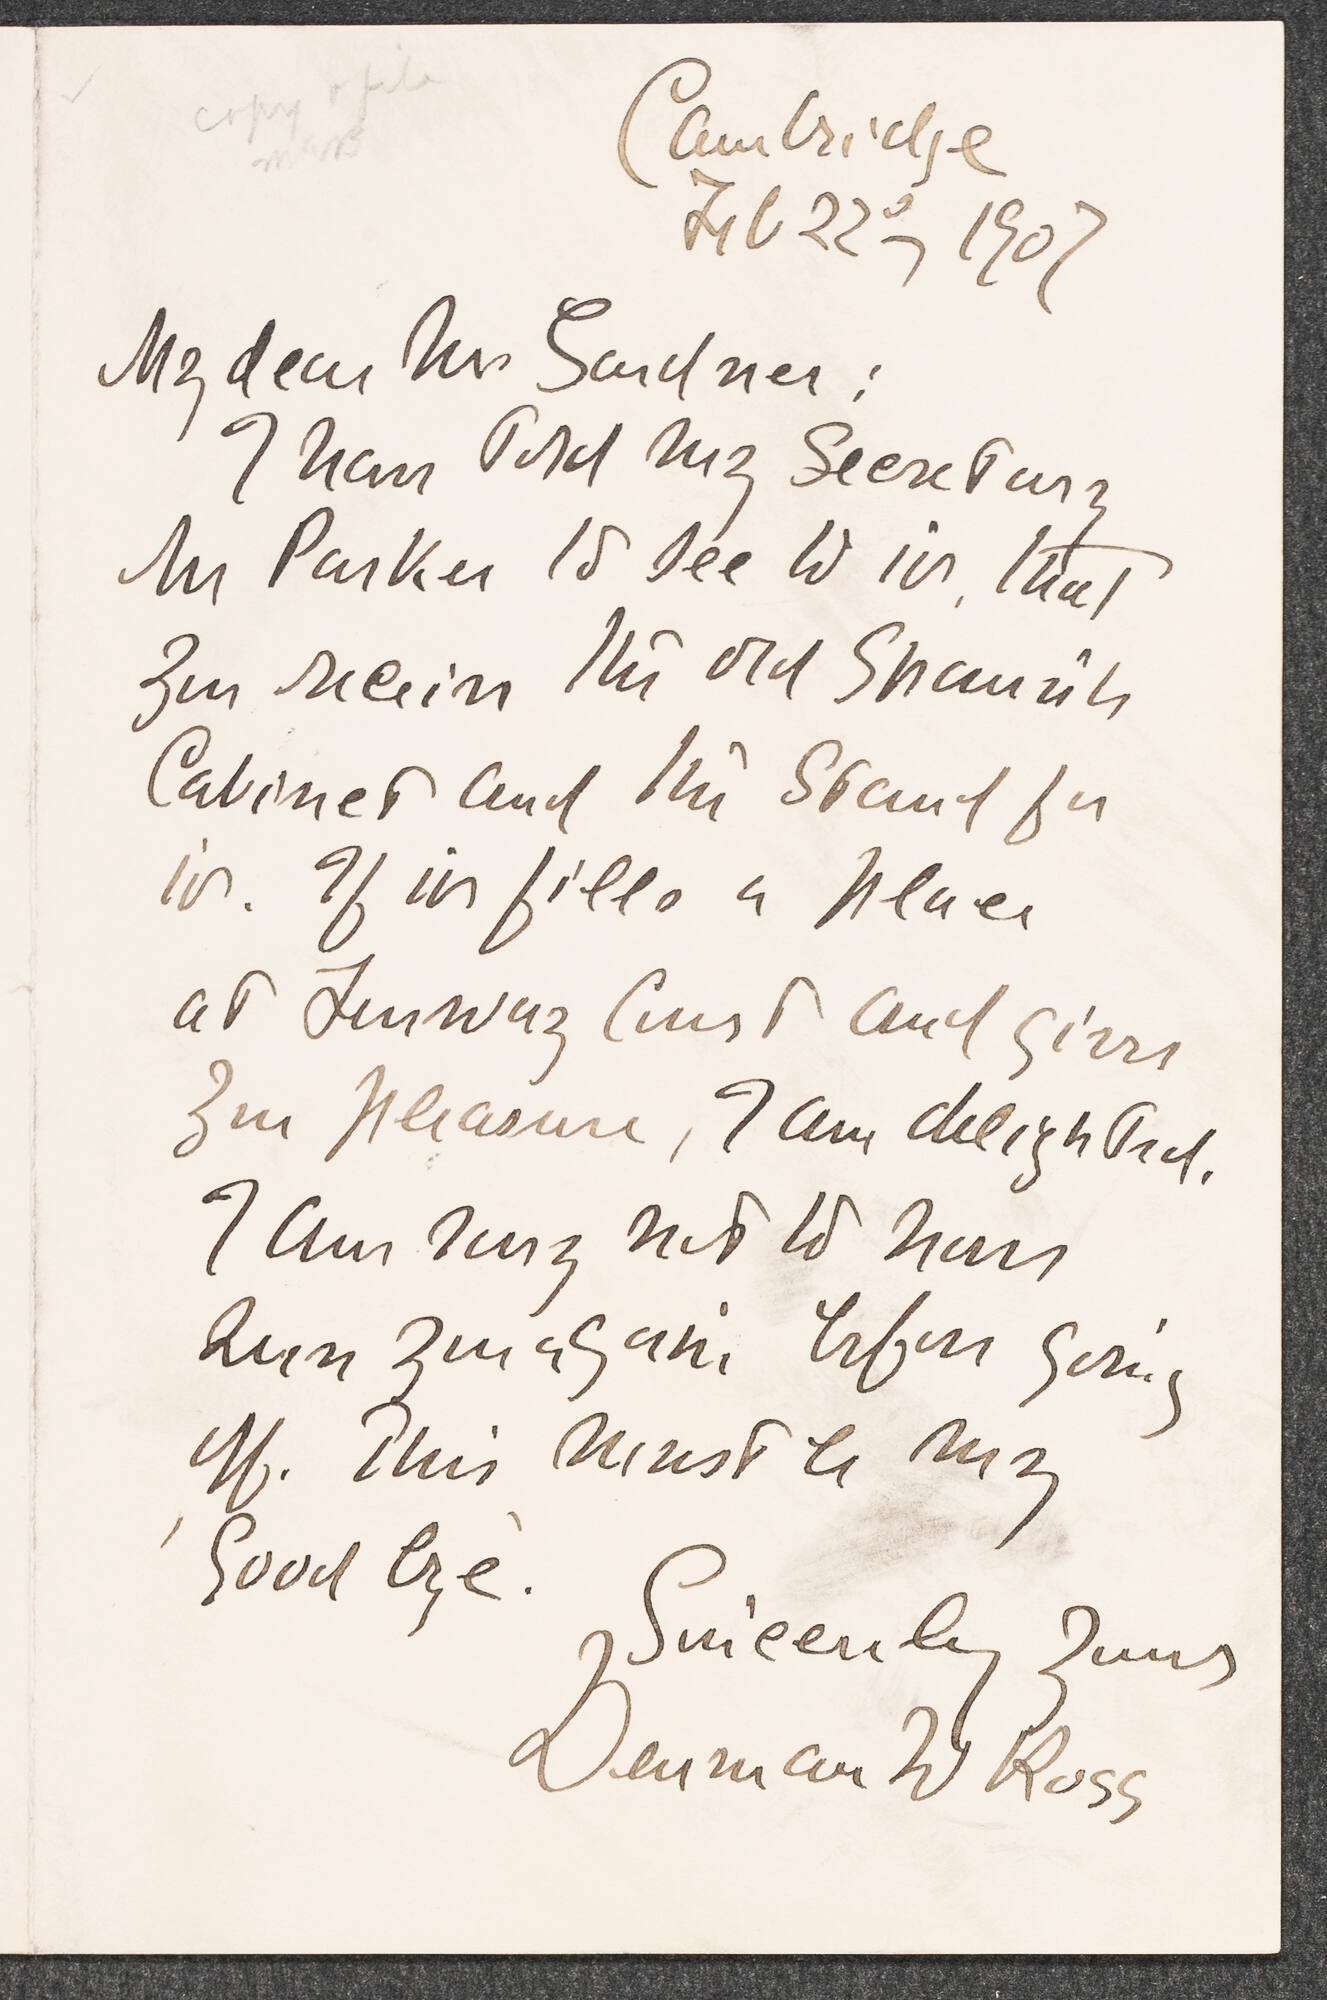 copy & file
Cambridge
Feb 22d, 1907
My dear Mrs Gardner:
I have told my Secretary
Mr Parker to see to it, that
you receive the old Spanish
Cabinet and the Stand for
it. If it fills a place
at Fenway Court and gives
you pleasure, I am delighted.
I am sorry not to have
seen you again before going
off. This must be my
'Good bye'.
Sincerely yours
Denman W Ross